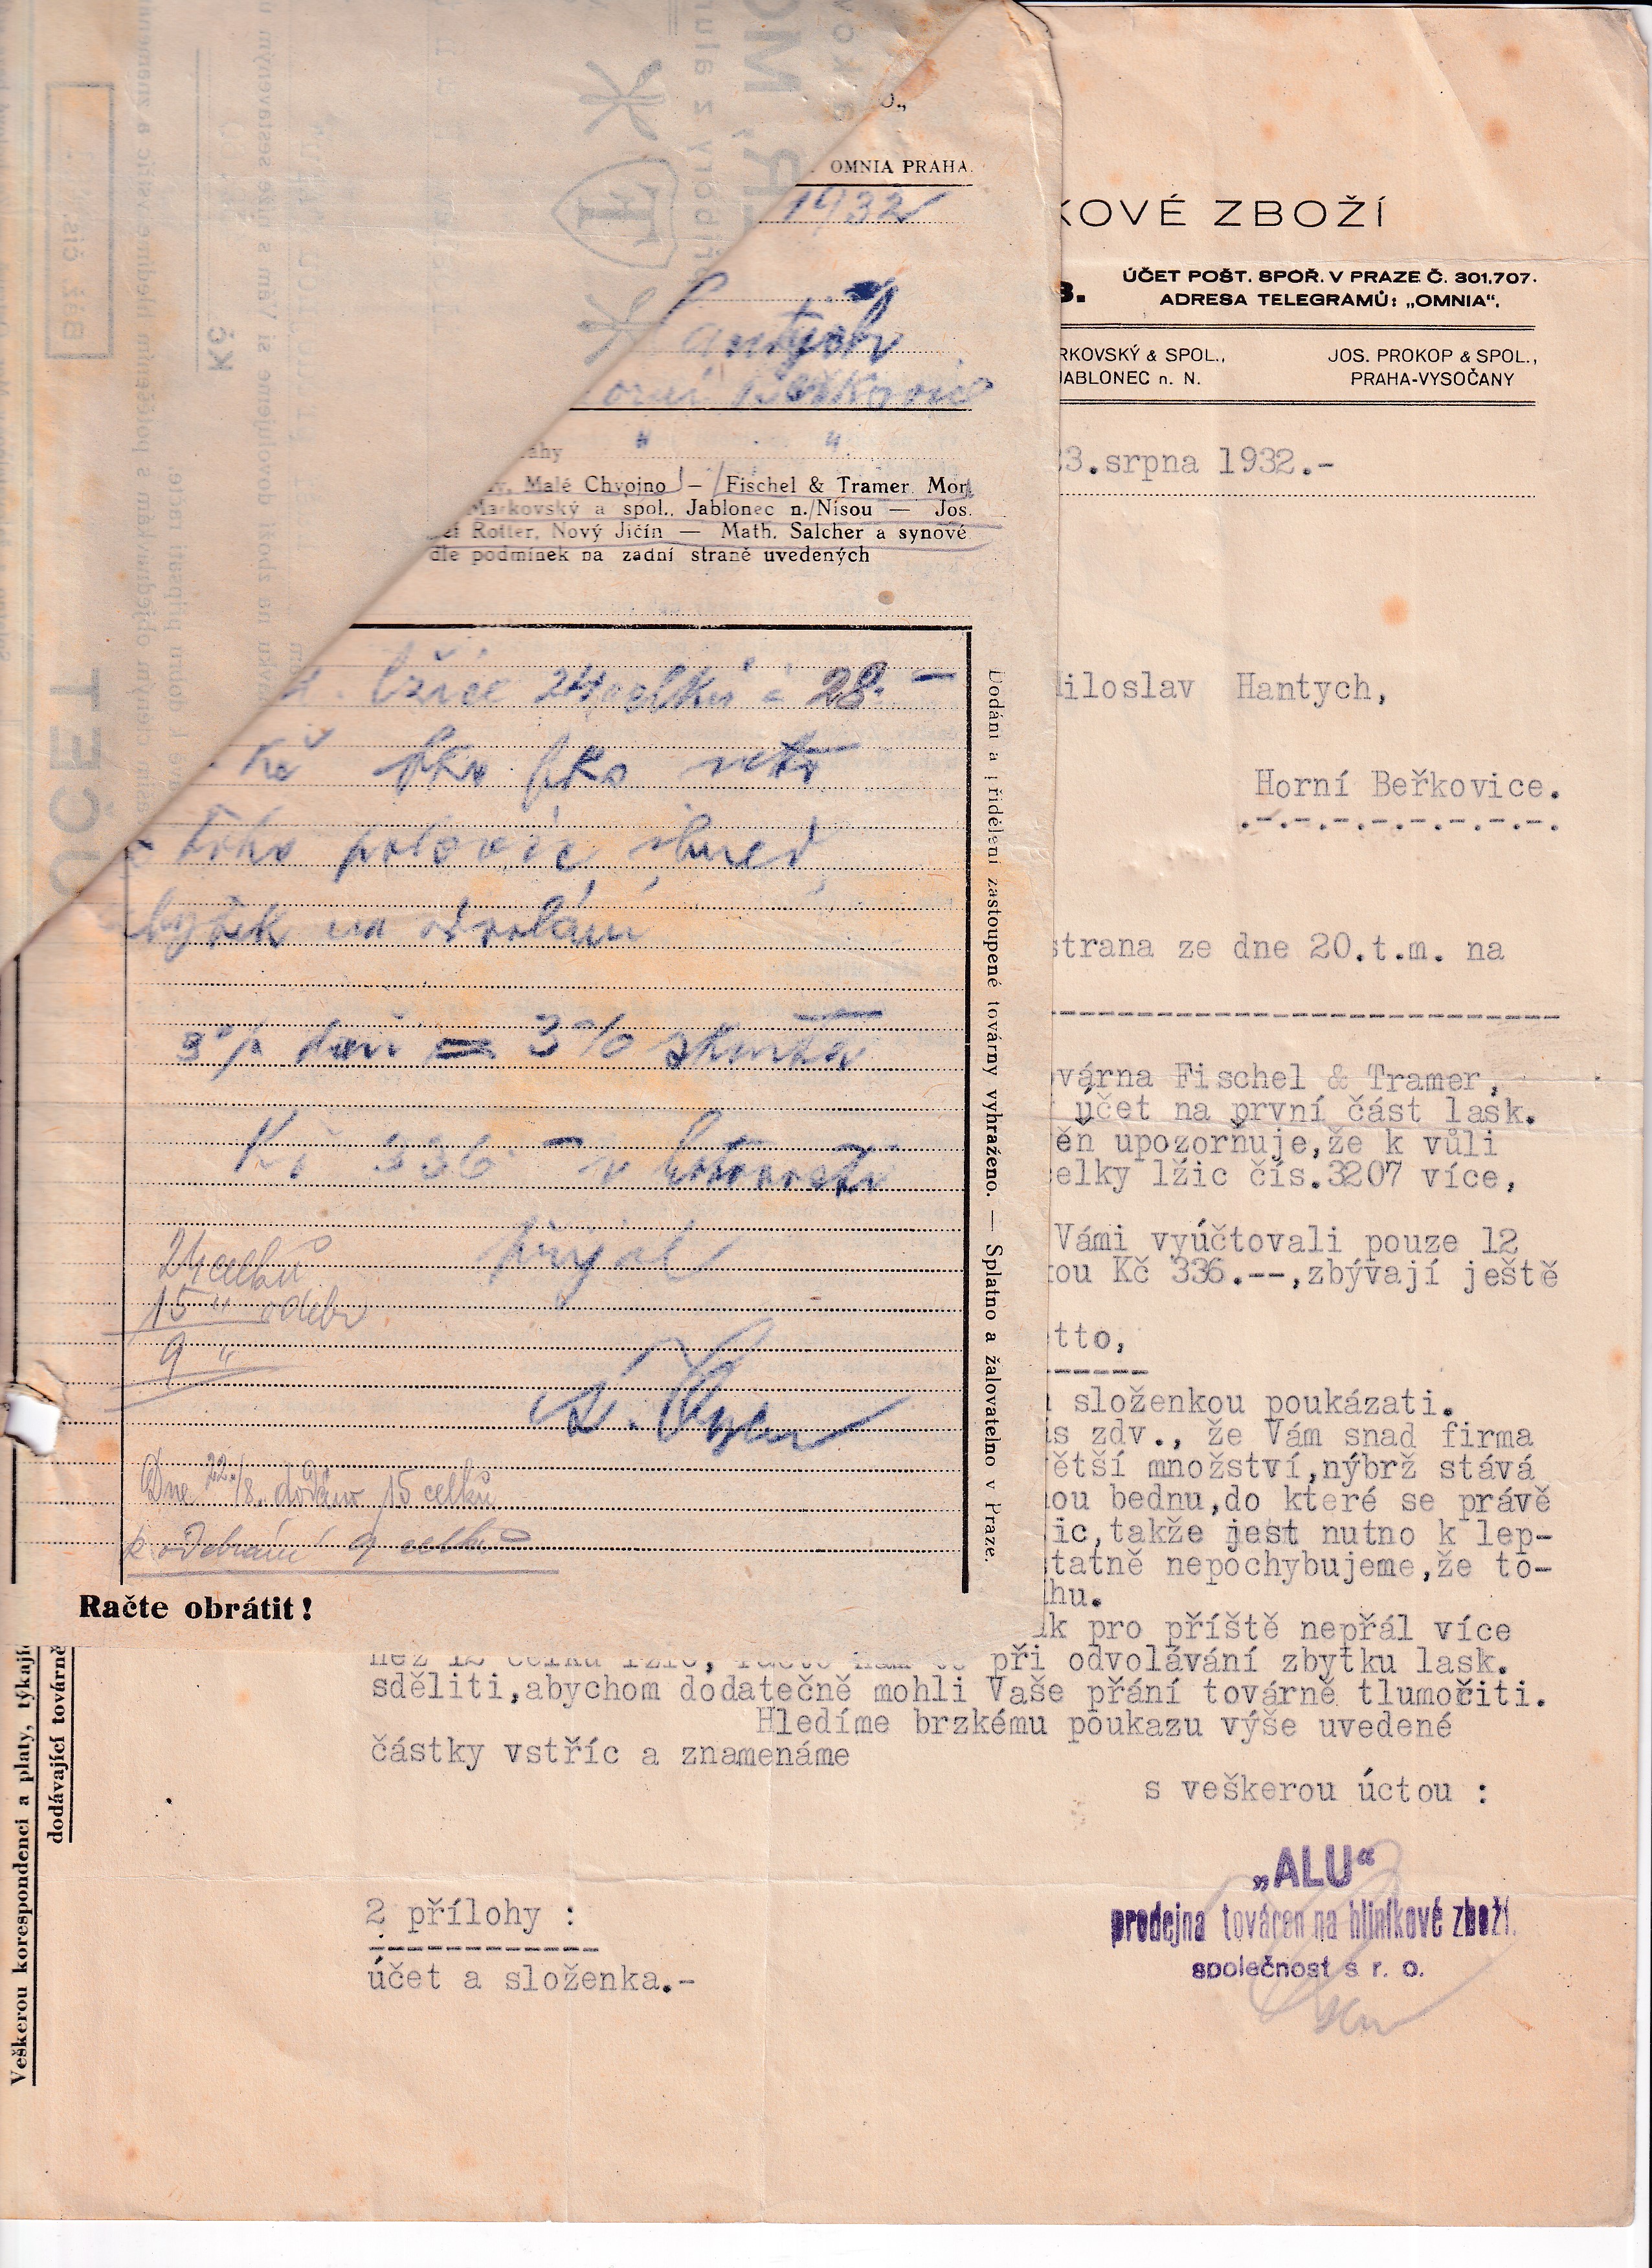 OMNIA PRAHA.
1932
Hantych
Horní Beřkovice
Malé Chvojno — Fischel & Tramer, Mor.
Markovský a spol., Jablonec n./Nisou — Jos.
Rotter, Nový Jičín — Math. Salcher a synové
dle podmínek na zadní straně uvedených
lžíce 24 celků à 28.—
Kč fko fko netto
z toho polovic ihned,
zbytek na odvolání
3% daň = 3% skonto
Kč 336 — v hotovosti
přijal
24 celků
15 " odebr
9 "
Dne 22./8. dodáno 15 celků
k odebrání 9 celků
Račte obrátit!
Dodání a přidělení zastoupené továrny vyhraženo. — Splatno a žalovatelno v Praze.
ÚČET
Kč
Báz. čís.
KOVÉ ZBOŽÍ
ÚČET POŠT. SPOŘ. V PRAZE Č. 301.707.
ADRESA TELEGRAMŮ: „OMNIA“.
RKOVSKÝ & SPOL.,
JABLONEC n. N.
JOS. PROKOP & SPOL.,
PRAHA-VYSOČANY
3.srpna 1932.-
iloslav Hantych,
Horní Beřkovice.
strana ze dne 20.t.m. na
várna Fischel & Tramer,
účet na první část lask.
ěn upozorňuje,že k vůli
elky lžic čís.3207 více,
Vámi vyúčtovali pouze 12
ou Kč 336.--,zbývají ještě
tto,
složenkou poukázati.
s zdv., že Vám snad firma
ětší množství,nýbrž stává
ou bednu,do které se právě
ic,takže jest nutno k lep-
tatně nepochybujeme,že to-
hu.
k pro příště nepřál více
než 12 celků lžic, při odvolávání zbytku lask.
sděliti,abychom dodatečně mohli Vaše přání továrně tlumočiti.
Hledíme brzkému poukazu výše uvedené
částky vstříc a znamenáme
s veškerou úctou :
„ALU“
prodejna továren na hliníkové zboží.
společnost s r. o.
2 přílohy :
účet a složenka.-
Veškerou korespondenci a platy, týkají
dodávající továrně